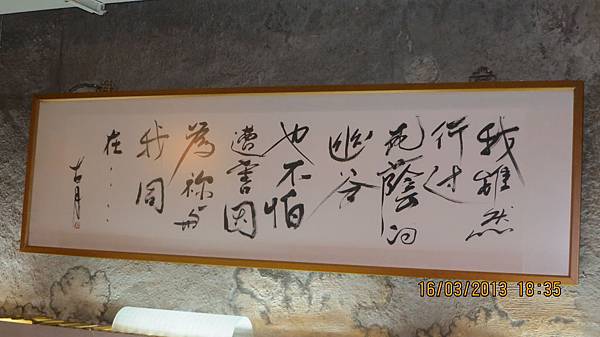 我雖然
行过
死蔭的
幽谷
也不怕
遭害因
為祢与
我同
在...
古月
16/03/2013 18:35